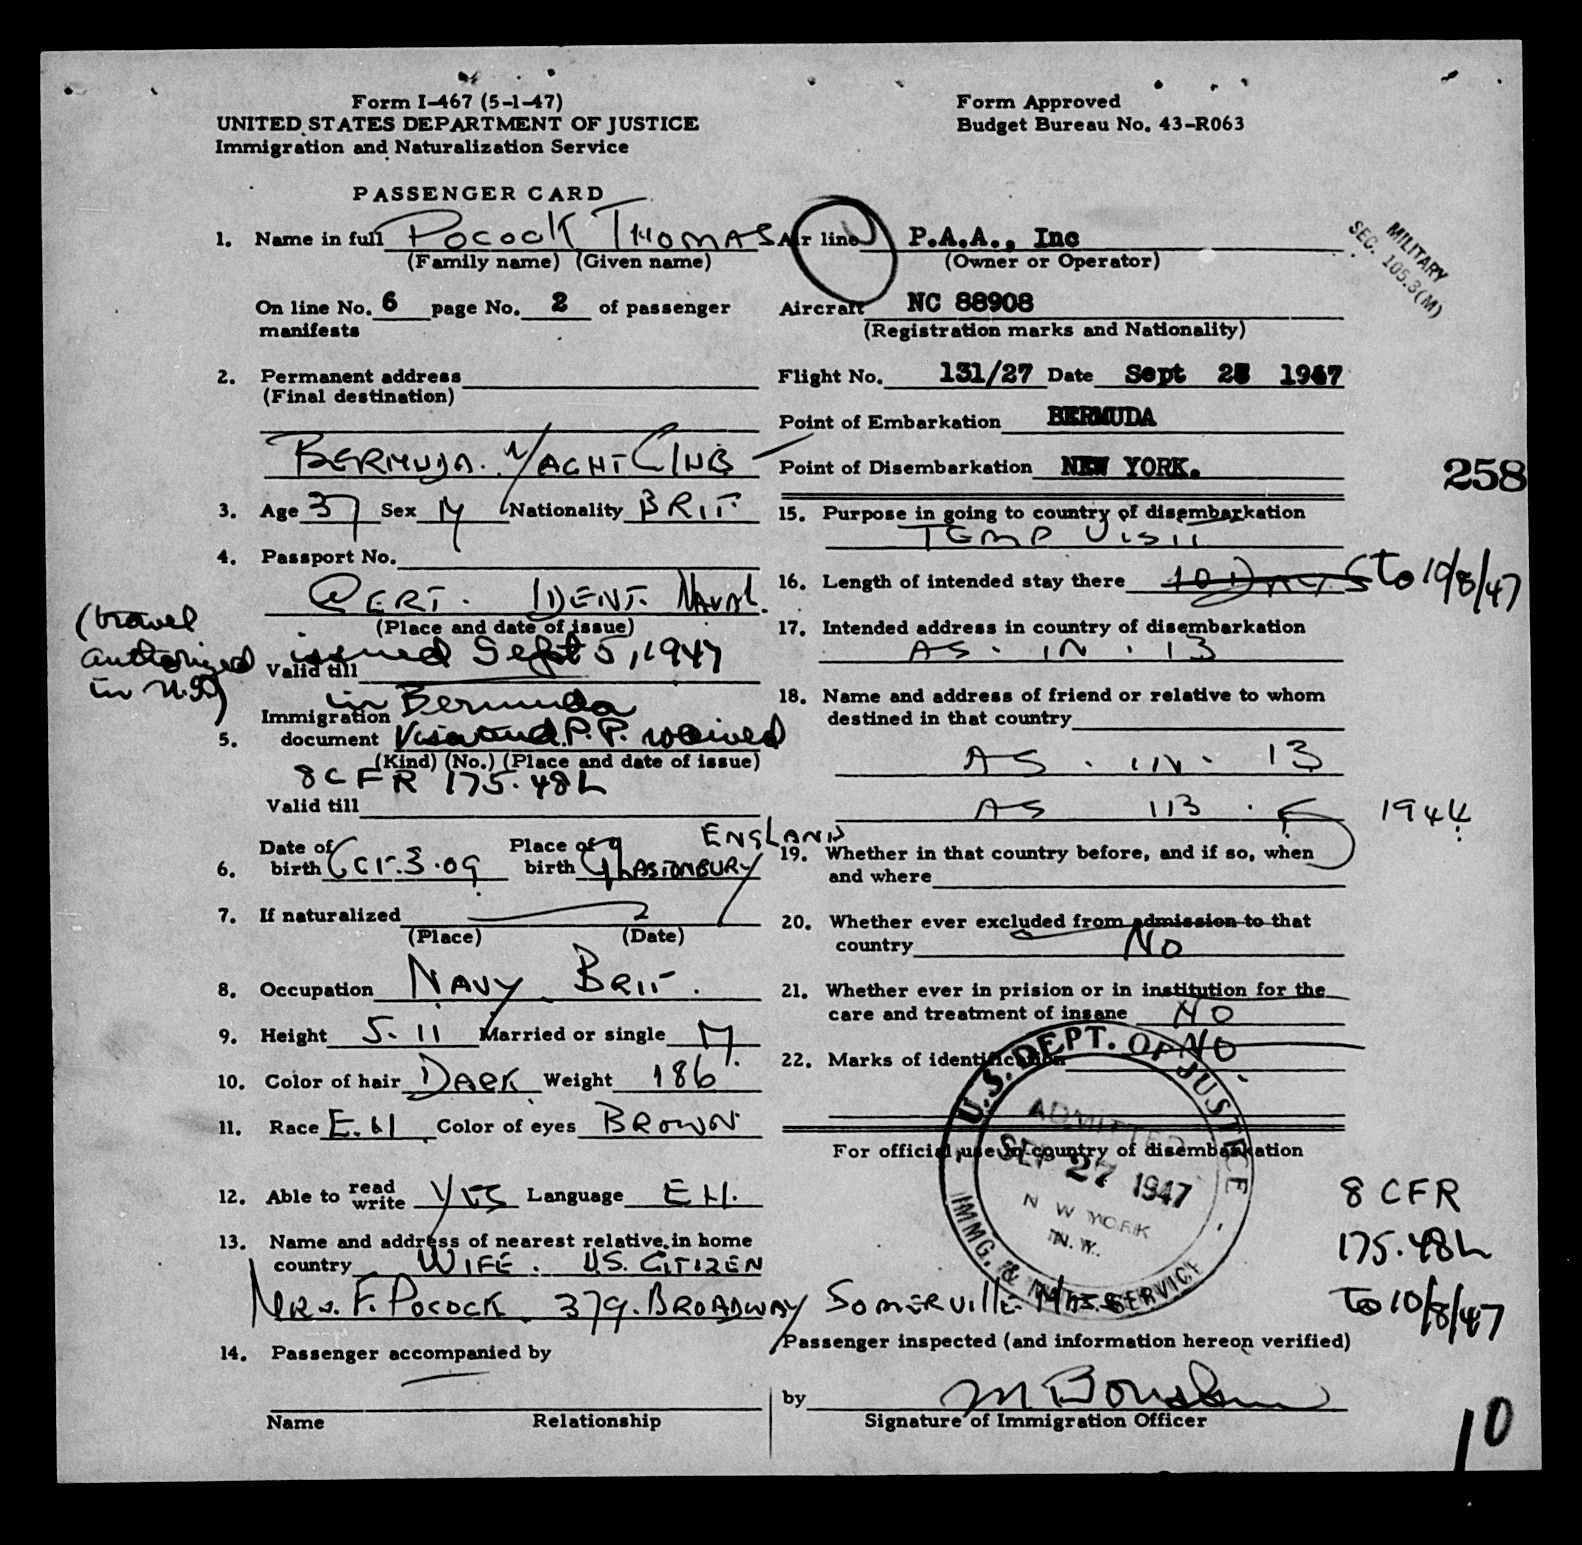 Form I-467 (5-1-47)
UNITED STATES DEPARTMENT OF JUSTICE
Immigration and Naturalization Service
Form Approved
Budget Bureau No. 43-R063
PASSENGER CARD
MILITARY
SEC. 105.3(M)
1. Name in full POCOCK THOMAS
(Family name) (Given name)
On line No. 6 page No. 2 of passenger
manifests
2. Permanent address
(Final destination)
BERMUDA. YACHT CLUB
3. Age 37 Sex M Nationality BRIT
4. Passport No.
CERT. IDENT. NAVAL.
(Place and date of issue)
issued Sept 5, 1947
Valid till
in Bermuda
(travel
authorized
in
Immigration
5. document Visa and P.P. waived
(Kind) (No.) (Place and date of issue)
8 CFR 175.48
Valid till
ENGLAND
6. Date of birth OCT. 3. 09 Place of birth GLASTONBURY
7. If naturalized
(Place) (Date)
8. Occupation NAVY BRIT.
9. Height 5-11 Married or single M.
10. Color of hair DARK Weight 186
11. Race Color of eyes BROWN
12. Able to read write YES Language
13. Name and address of nearest relative in home
country WIFE. U.S. CITIZEN
MRS. F. POCOCK 379. BROADWAY SOMERVILLE Mass
14. Passenger accompanied by
Name Relationship
Air line P.A.A., Inc
(Owner or Operator)
Aircraft NC 88908
(Registration marks and Nationality)
Flight No. 131/27 Date Sept 1947
Point of Embarkation BERMUDA
Point of Disembarkation NEW YORK.
258
15. Purpose in going to country of disembarkation
TEMP VISIT
16. Length of intended stay there 10 DAYS To 10/8/47
17. Intended address in country of disembarkation
AS. IN. 13
18. Name and address of friend or relative to whom
destined in that country
AS. IN. 13
AS 113. 1944
19. Whether in that country before, and if so, when
and where
20. Whether ever excluded from admission to that
country NO
21. Whether ever in prision or in institution for the
care and treatment of insane NO
22. Marks of identification NO
For official use in country of disembarkation
U.S. DEPT. OF JUSTICE
IMMG. & NATZ. SERVICE
ADMITTED
SEP 27 1947
NEW YORK
N.Y.
8 CFR
175.48
To 10/8/47
Passenger inspected (and information hereon verified)
by
Signature of Immigration Officer
10